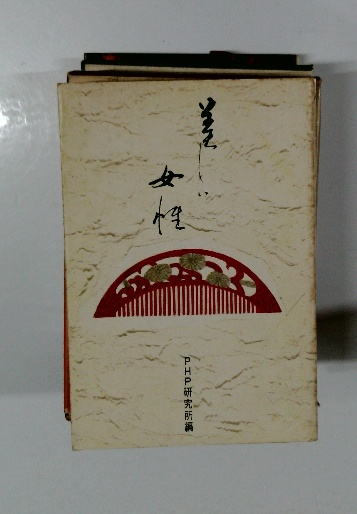 美しい
女性
PHP研究所編